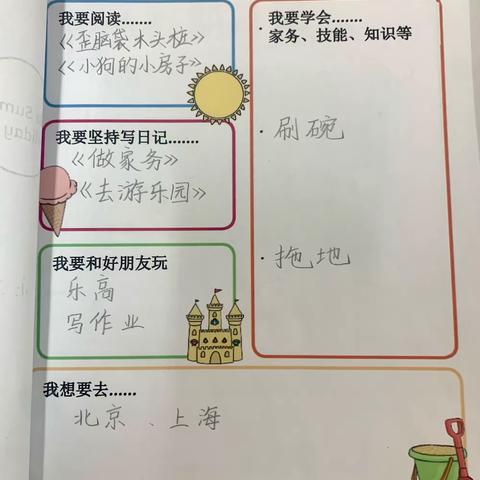 我要阅读.......
《歪脑袋木头桩》
《小狗的小房子》
我要坚持写日记.......
《做家务》
《去游乐园》
我要和好朋友玩
乐高
写作业
我要学会.......
家务、技能、知识等
·刷碗
·拖地
我想要去......
北京、上海